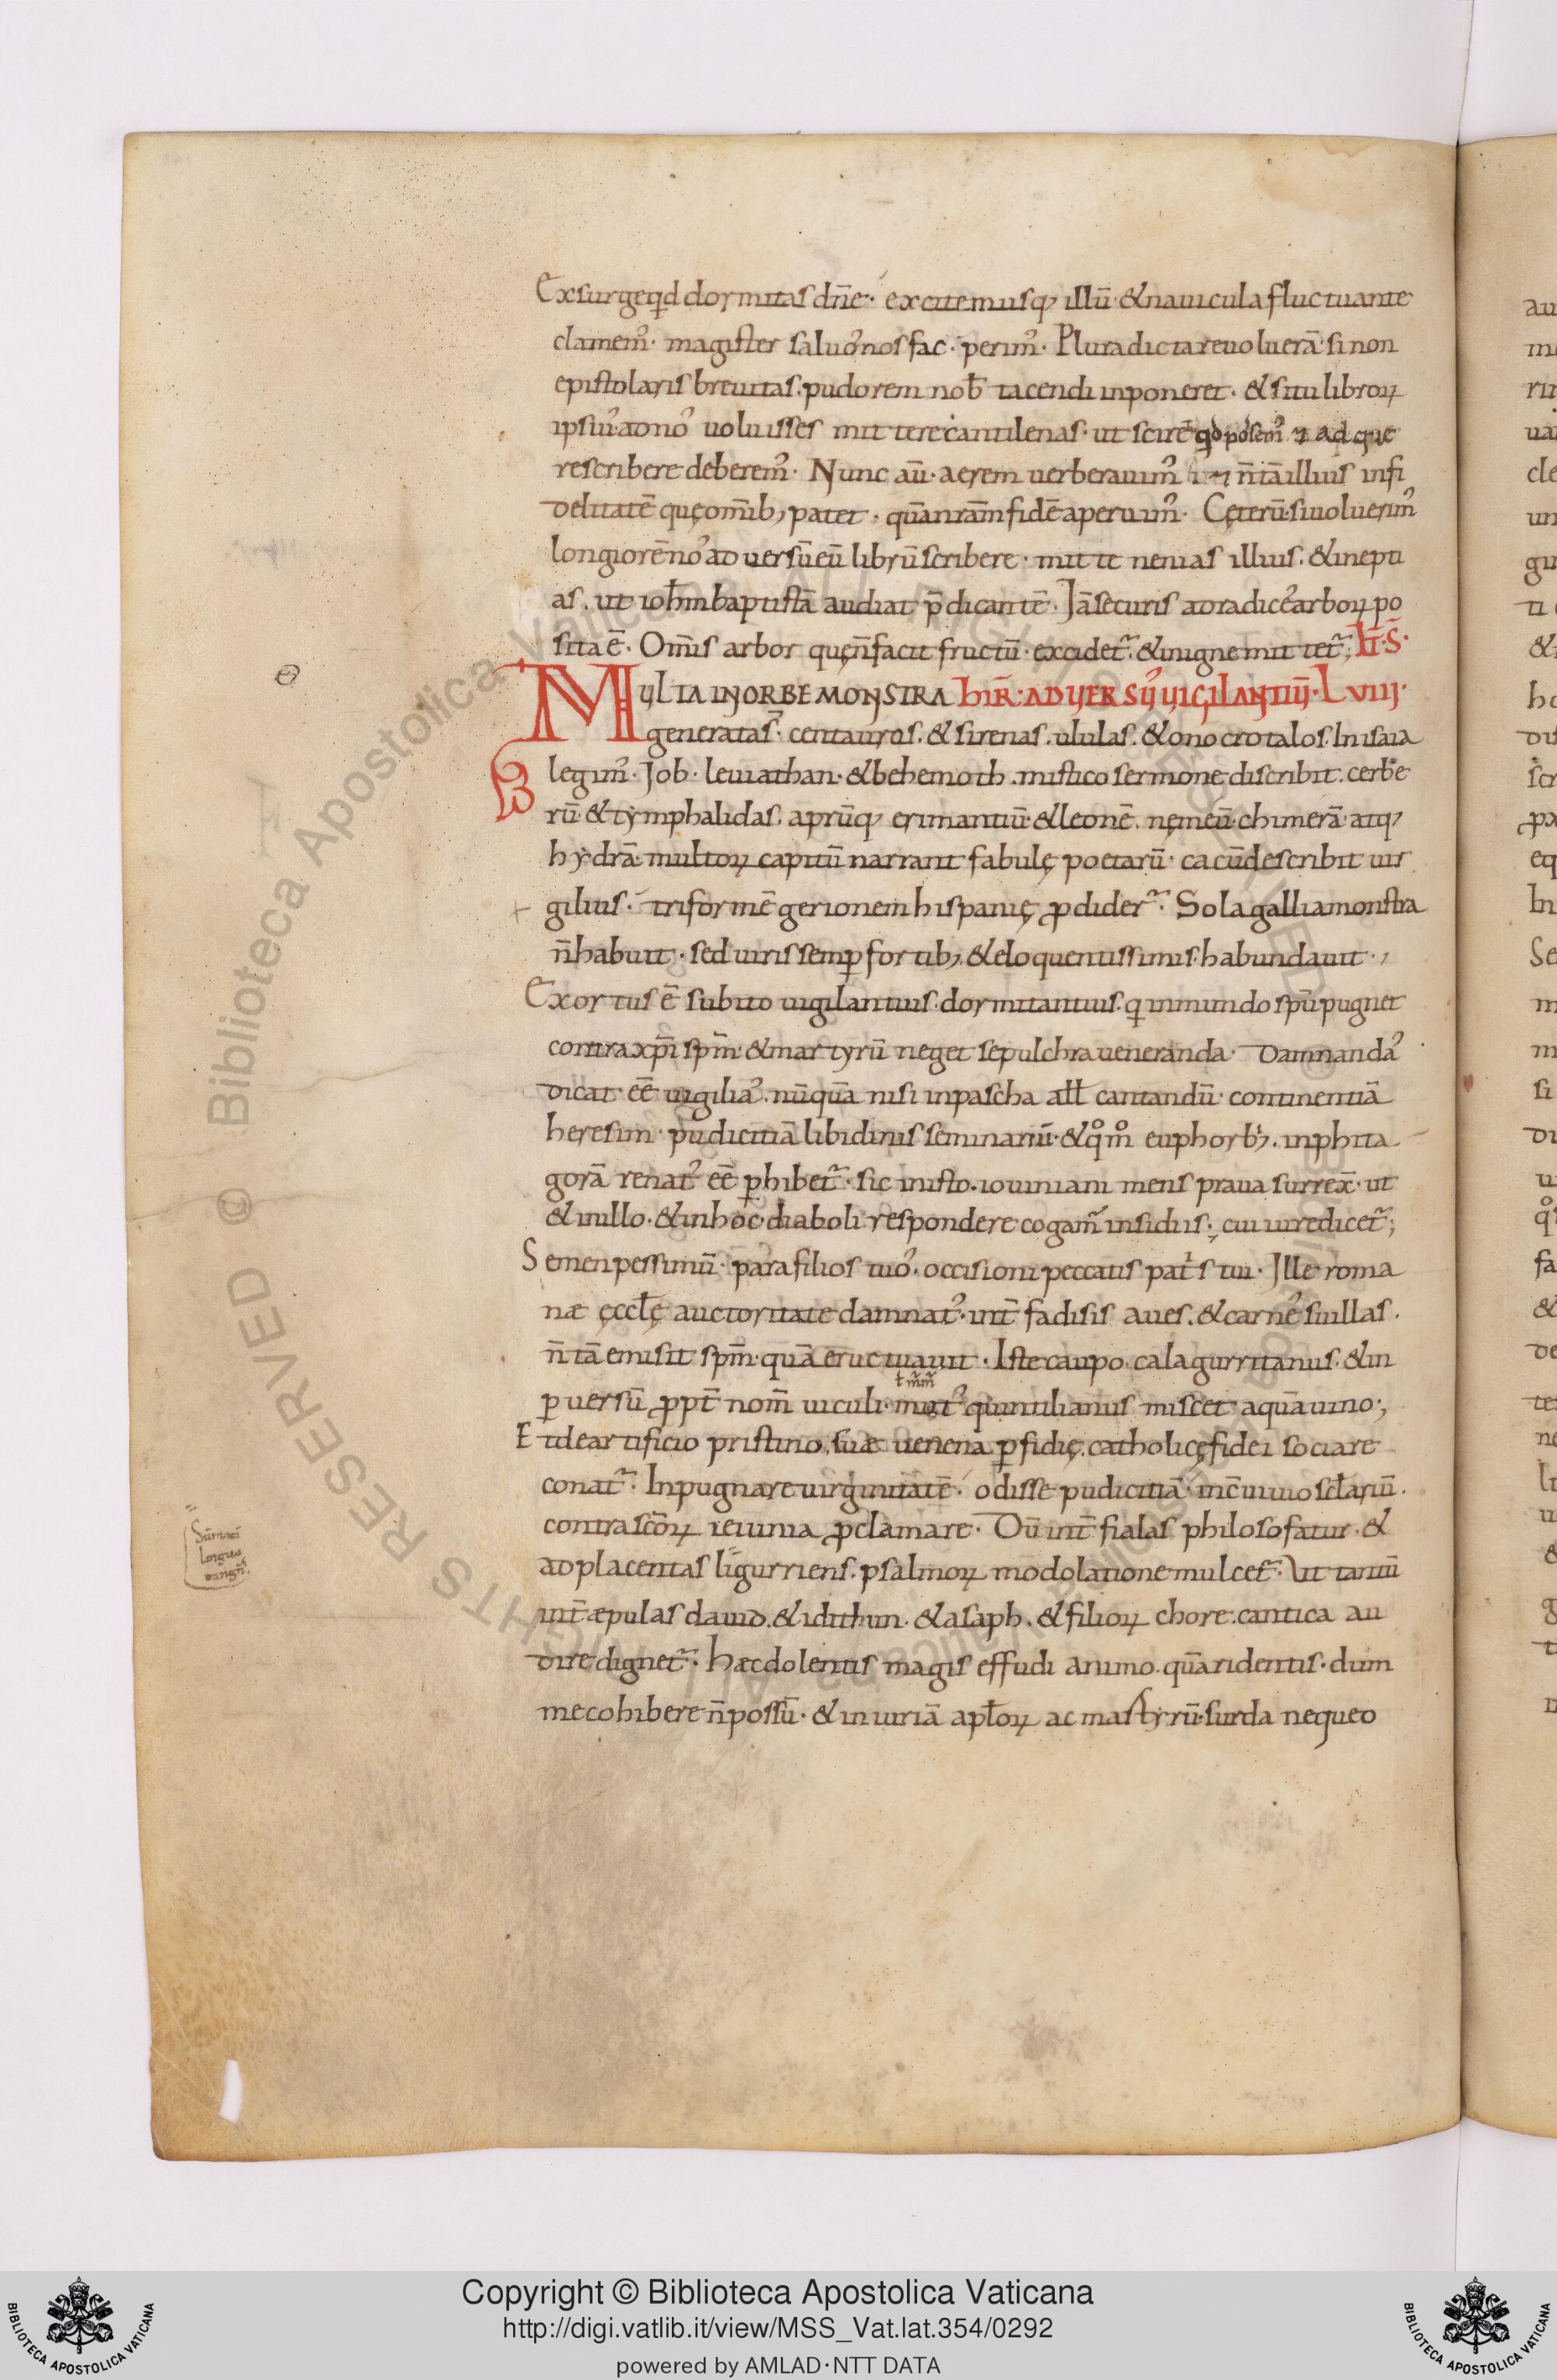 Exsurge qd dormitas dn̄e· excitemusq; illū· & nauicula fluctuante
clamem᾽· magister saluo᾽ nos fac· perim᾽· Plura dictare uoluerā· si non
epistolaris breuitas· pudorem nob̄ tacendi inponeret· & si tu libroꝝ
ipsiu᾽ ad no᾽ uoluisses mittere cantilenas· ut scirem᾽ ad que
rescribere deberem᾽· Nunc aū· aerem uerberauim᾽ n̄ tā illius infi
delitatē quę om̄ib; patet· quā nr̄am fidē aperuim᾽· Cęterū· si uoluerim᾽
longiorē no᾽ aduersū eū librū scribere· mitte nenias illius· & inepti
as· ut ioh̄m baptistā audiat p̄dicantē· Jā securis ad radice᾽ arboꝝ po
sita ē· Om̄is arbor quę n̄ facit fructū· excidet᷑· & in igne mittet᷑; h̄·S̄·
MULTA IN ORBE MONSTRA hIR̄· ADUERSŪ UIGILANTIŪ· LVIIIJ·
generata s̄· centauros· & sirenas· ululas· & onocrotalos· In isaia
legim᾽· Job· leuiathan· & behemoth· mistico sermone discribit· cerbe
rū· & tymphalidas· aprūq; erimantiū· & leonē· nęmeū· chimerā· atq;
hydrā· multoꝝ capitū narrant fabulę poetarū· cacū describit uir
gilius· triformē gerionem hispanię ꝓdider᷑· Sola gallia monstra
n̄ habuit· sed uiris semꝑ fortib; & eloquentissimis habundauit·,
Exortus ē subito uigilantius· dormitantius· q inmundo spū pugnet
contra xp̄i spm̄· & martyrū neget sepulchra ueneranda· Damnanda᾽
dicat eē uigilia᾽· nūquā nisi in pascha all̄ cantandū· continentiā
heresim· pudicitiā libidinis seminariū· & qͦmͦ euphorb; in phita
gorā renat᾽ eē ꝑhibet᷑· sic in isto· iouiniani mens praua surrex̄· ut
& in illo· & in hoc· diaboli respondere cogam᷑ insidiis· cui iure dicet᷑;
Semen pessimū· para filios tuo᾽· occisioni peccatis patⁱs tui· Ille roma
næ ęccl̄ę auctoritate damnat᾽· int̄ fadisis aues· & carne᾽ suillas·
n̄ tā emisit spm̄· quā eructuauit· Iste caupo· calagurritanus· & in
ꝑuersū ꝓpt̄ nom̄ uiculi· mut᾽ quintilianus miscet aquā uino·,
Et de artificio pristino· suæ uenena ꝑfidię· catholicę fidei sociare
conat᷑· Inpugnare uirginitatē· odisse pudicitiā· in c̄uiuio scl̄ariū·
contra sc̄oꝝ ieiunia ꝓclamare· Dū int̄ fialas philosofatur· &
ad placentas ligurriens· psalmoꝝ modolatione mulcet᷑· Ut tantū
int̄ æpulas dauid· & idithun· & asaph· & filioꝝ chore· cantica au
dire dignet᷑· Hæc dolentis magis effudi animo· quā ridentis· dum
me cohibere n̄ possū· & iniuriā apl̄oꝝ ac martyrū· surda nequeo
Copyright © Biblioteca Apostolica Vaticana
http://digi.vatlib.it/view/MSS_Vat.lat.354/0292
powered by AMLAD·NTT DATA